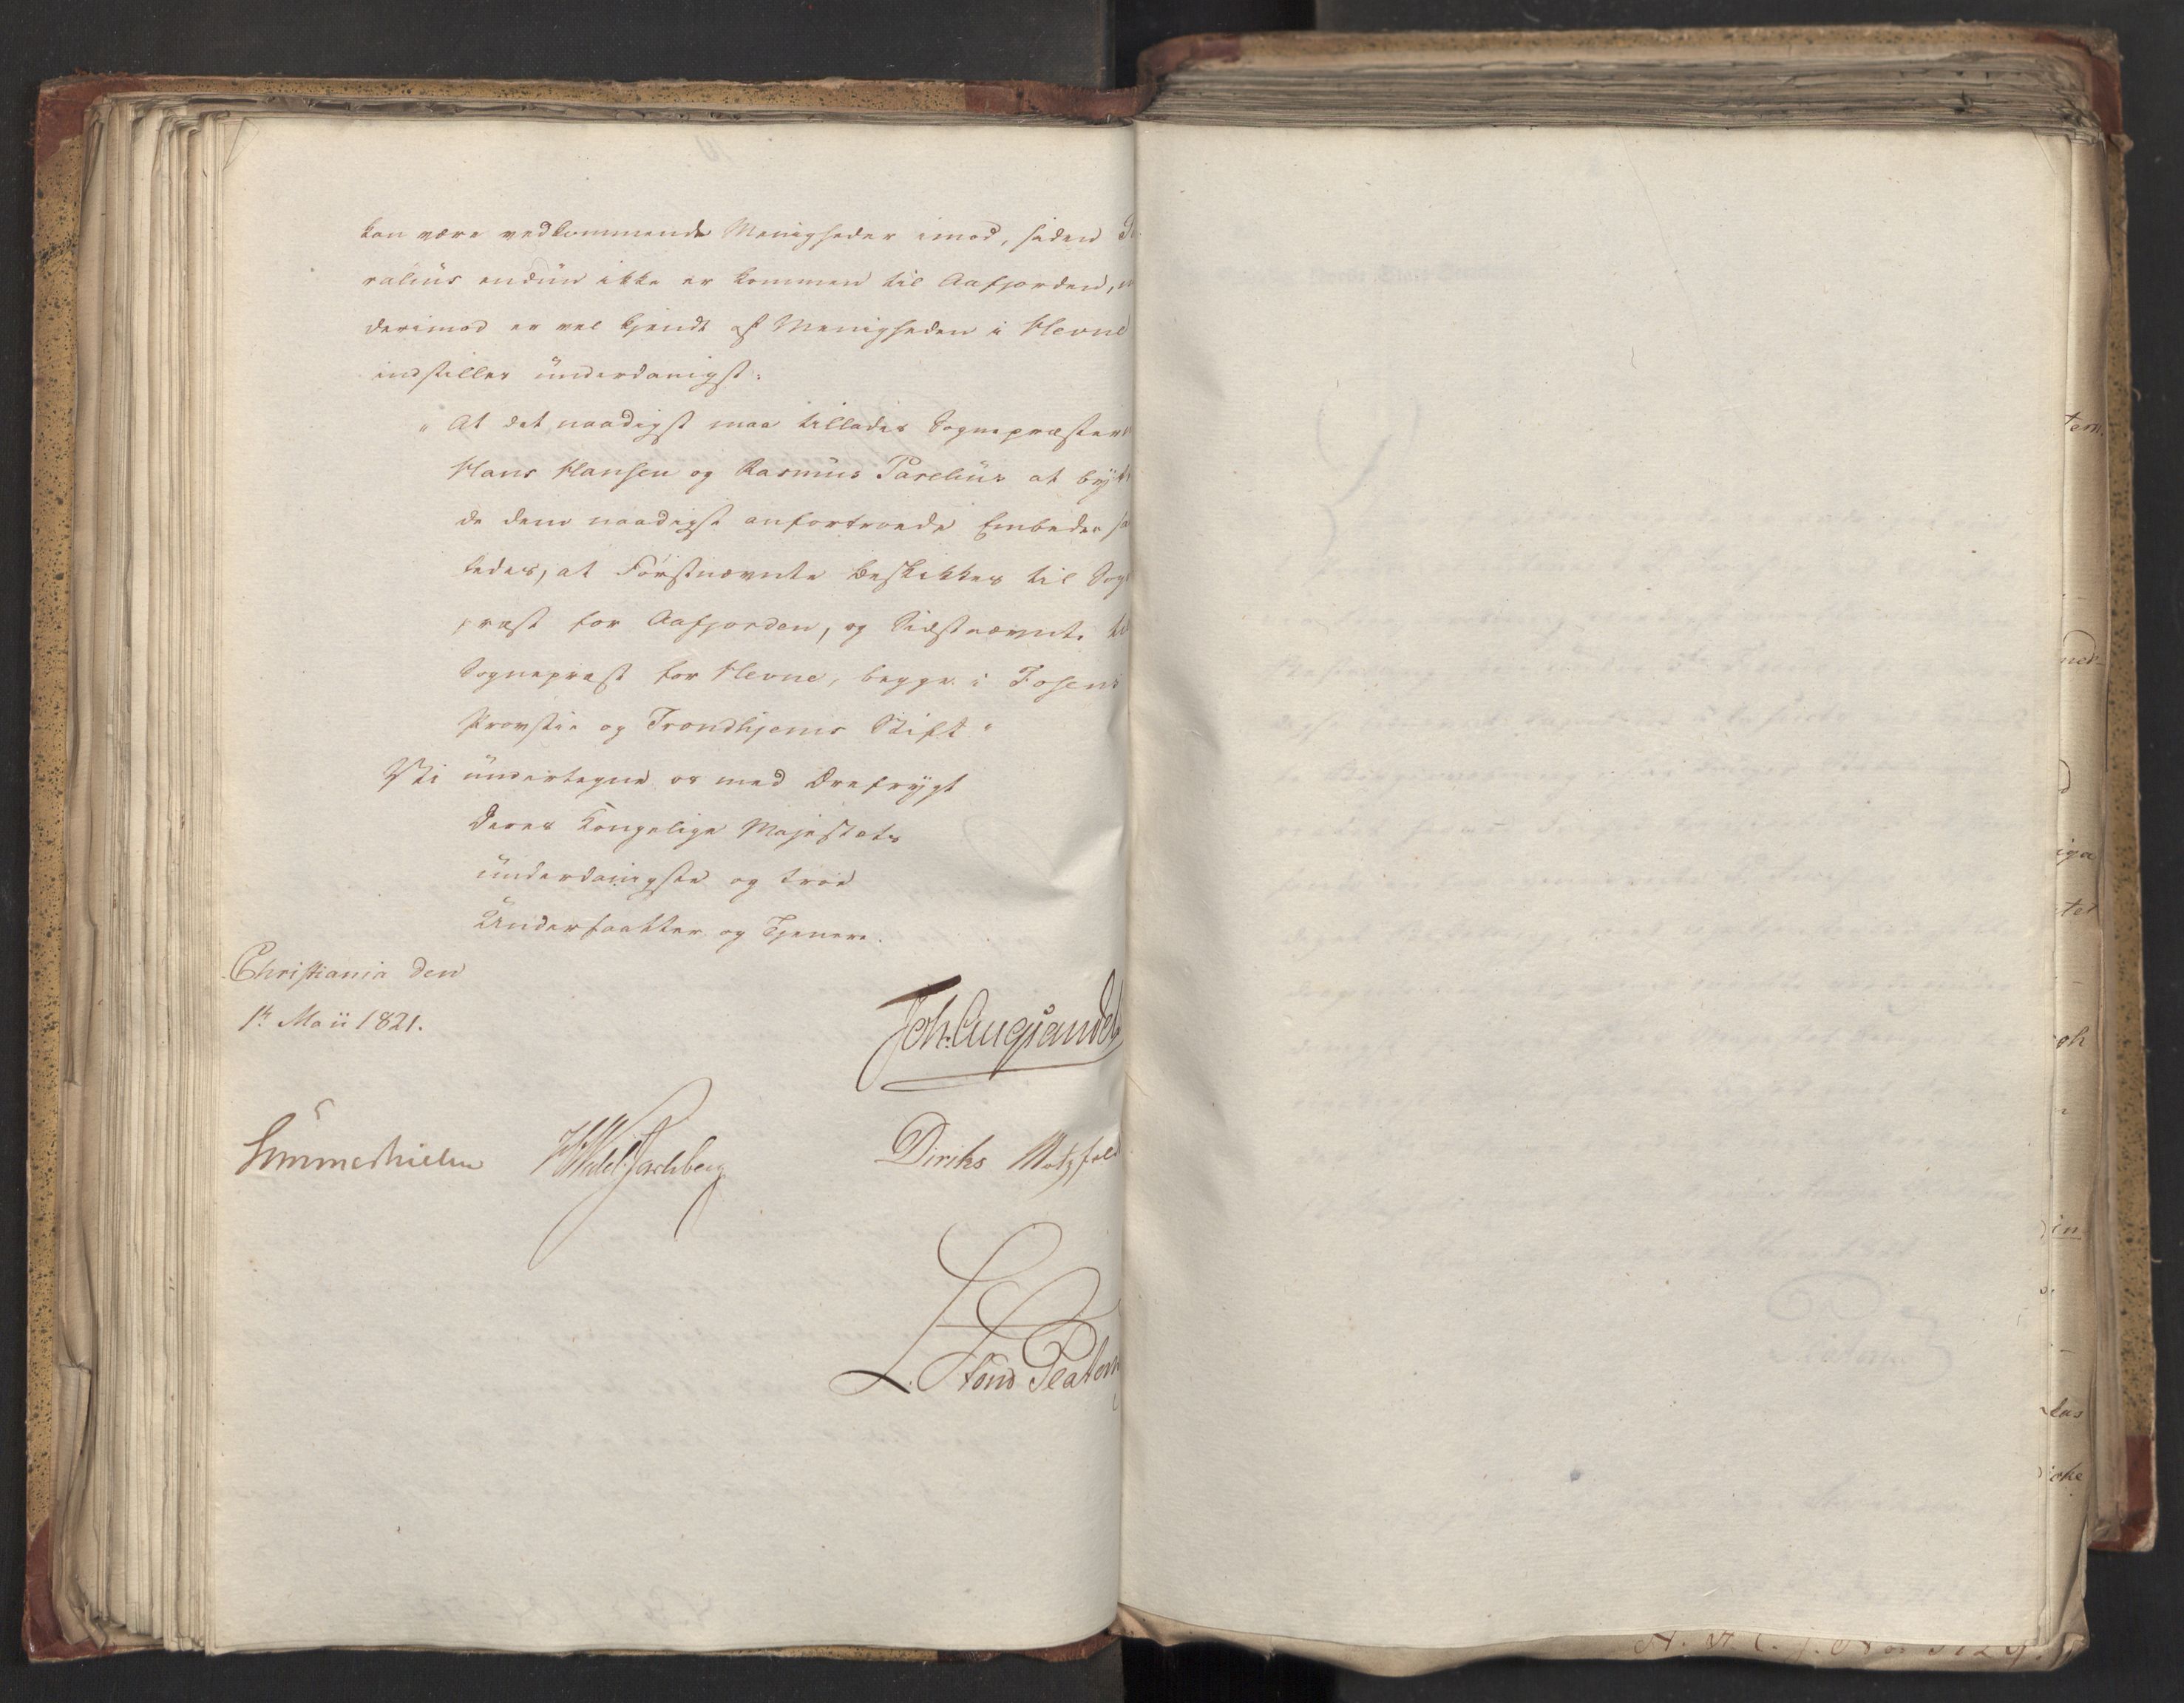 kan være vedkommende Menigheder imod, siden Pa
relius endnu ikke er kommen til Aafjorden,
derimod er vel kjendt af Menigheden i Hevne
indstilles underdanigst:
"At det naadigst maa tillades Sognepræsterne
Hans Hansen og Rasmus Parelius at bytte
de dem naadigst anfortroede Embeder saa
ledes, at Førstnævnte beskikkes til Sogne
præst for Aafjorden, og Sidstnævnte til
Sognepræst for Hevne, begge i Fosens
Provstie og Trondhjems Stift."
Vi undertegne os med Ærefrygt
Deres Kongelige Majestæts
underdanigste og troe
Undersaatter og Tjenere.
Christiania den
1te Maii 1821.
Joh. Aug. Sandels
Sommerhielm
Diriks Motzfeldt
L.